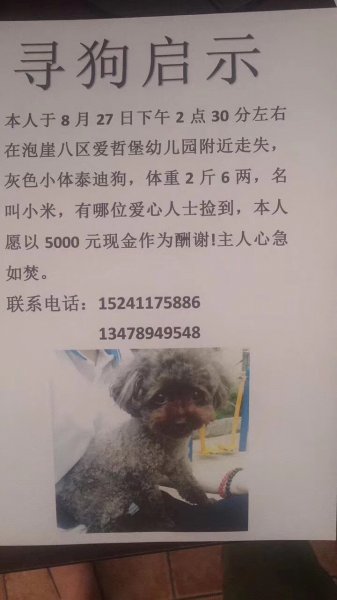 寻狗启示
本人于 8 月 27 日下午 2 点 30 分左右
在泡崖八区爱哲堡幼儿园附近走失，
灰色小体泰迪狗，体重 2 斤 6 两，名
叫小米，有哪位爱心人士捡到，本人
愿以 5000 元现金作为酬谢!主人心急
如焚。
联系电话：15241175886
13478949548